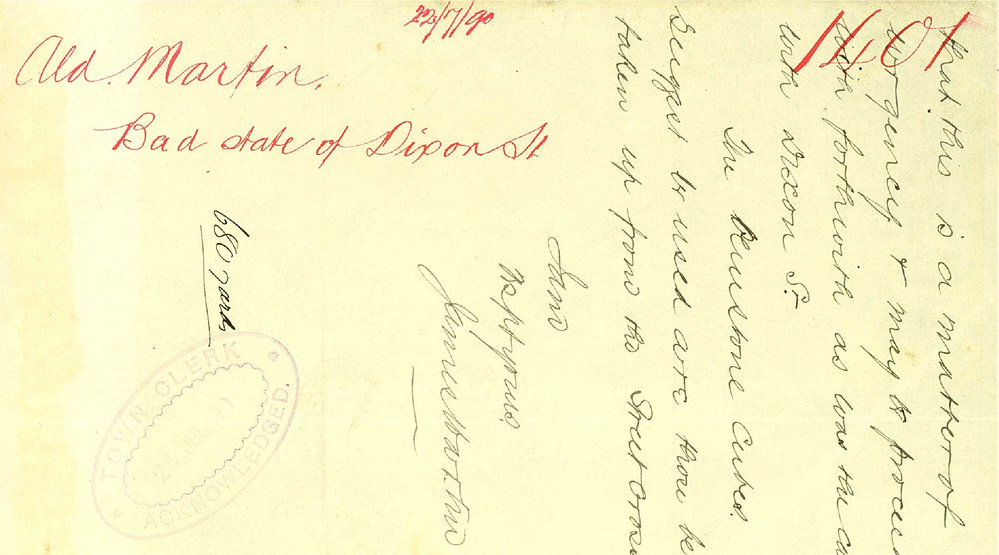 22/7/90
1401
Ald. Martin.
Bad state of Dixon St
that this is a matter of
urgency & may be proceed
with forthwith as was the ca
with Dixon St.
The Bluestone Cubes.
Suggest be used are those be
taken up from the Street Cross
I am
James Martin
680 yards
TOWN CLERK
ACKNOWLEDGED.